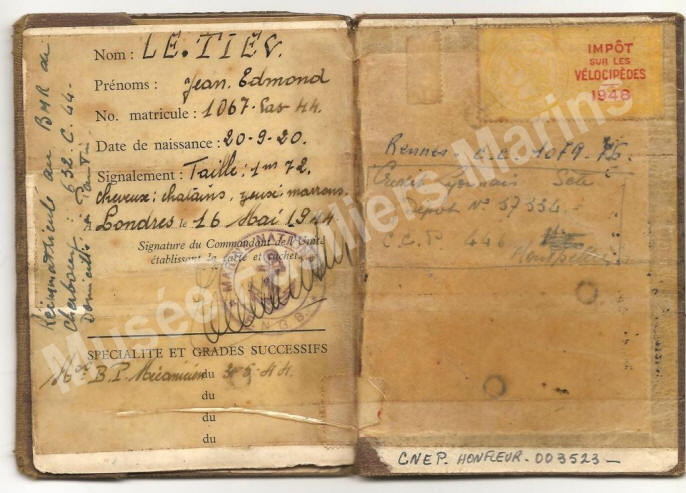 Nom : LE.TIEC.
Prénoms : Jean. Edmond
No. matricule : 1067. Fas 44.
Date de naissance : 20-9-20.
Signalement : Taille : 1m 72.
cheveux : chatains, yeux marrons.
A Londres le 16 Mai 1944
Signature du Commandant de l'Unité
établissant la carte et cachet.
SPÉCIALITÉ ET GRADES SUCCESSIFS
B.P. Mécanicien du 3-5-44.
du
du
du
Réimmatriculé au BMR de
Cherbourg : 632.C.44.
Domicilié à Pantin
IMPÔT
SUR LES
VÉLOCIPÈDES
1948
Rennes C.C. 1079.76.
Crédit Lyonnais Sète
Dépôt No 57334.
C.C.P. 446
Montpellier
CNEP. HONFLEUR. 003523 —
Musée Fusiliers Marins